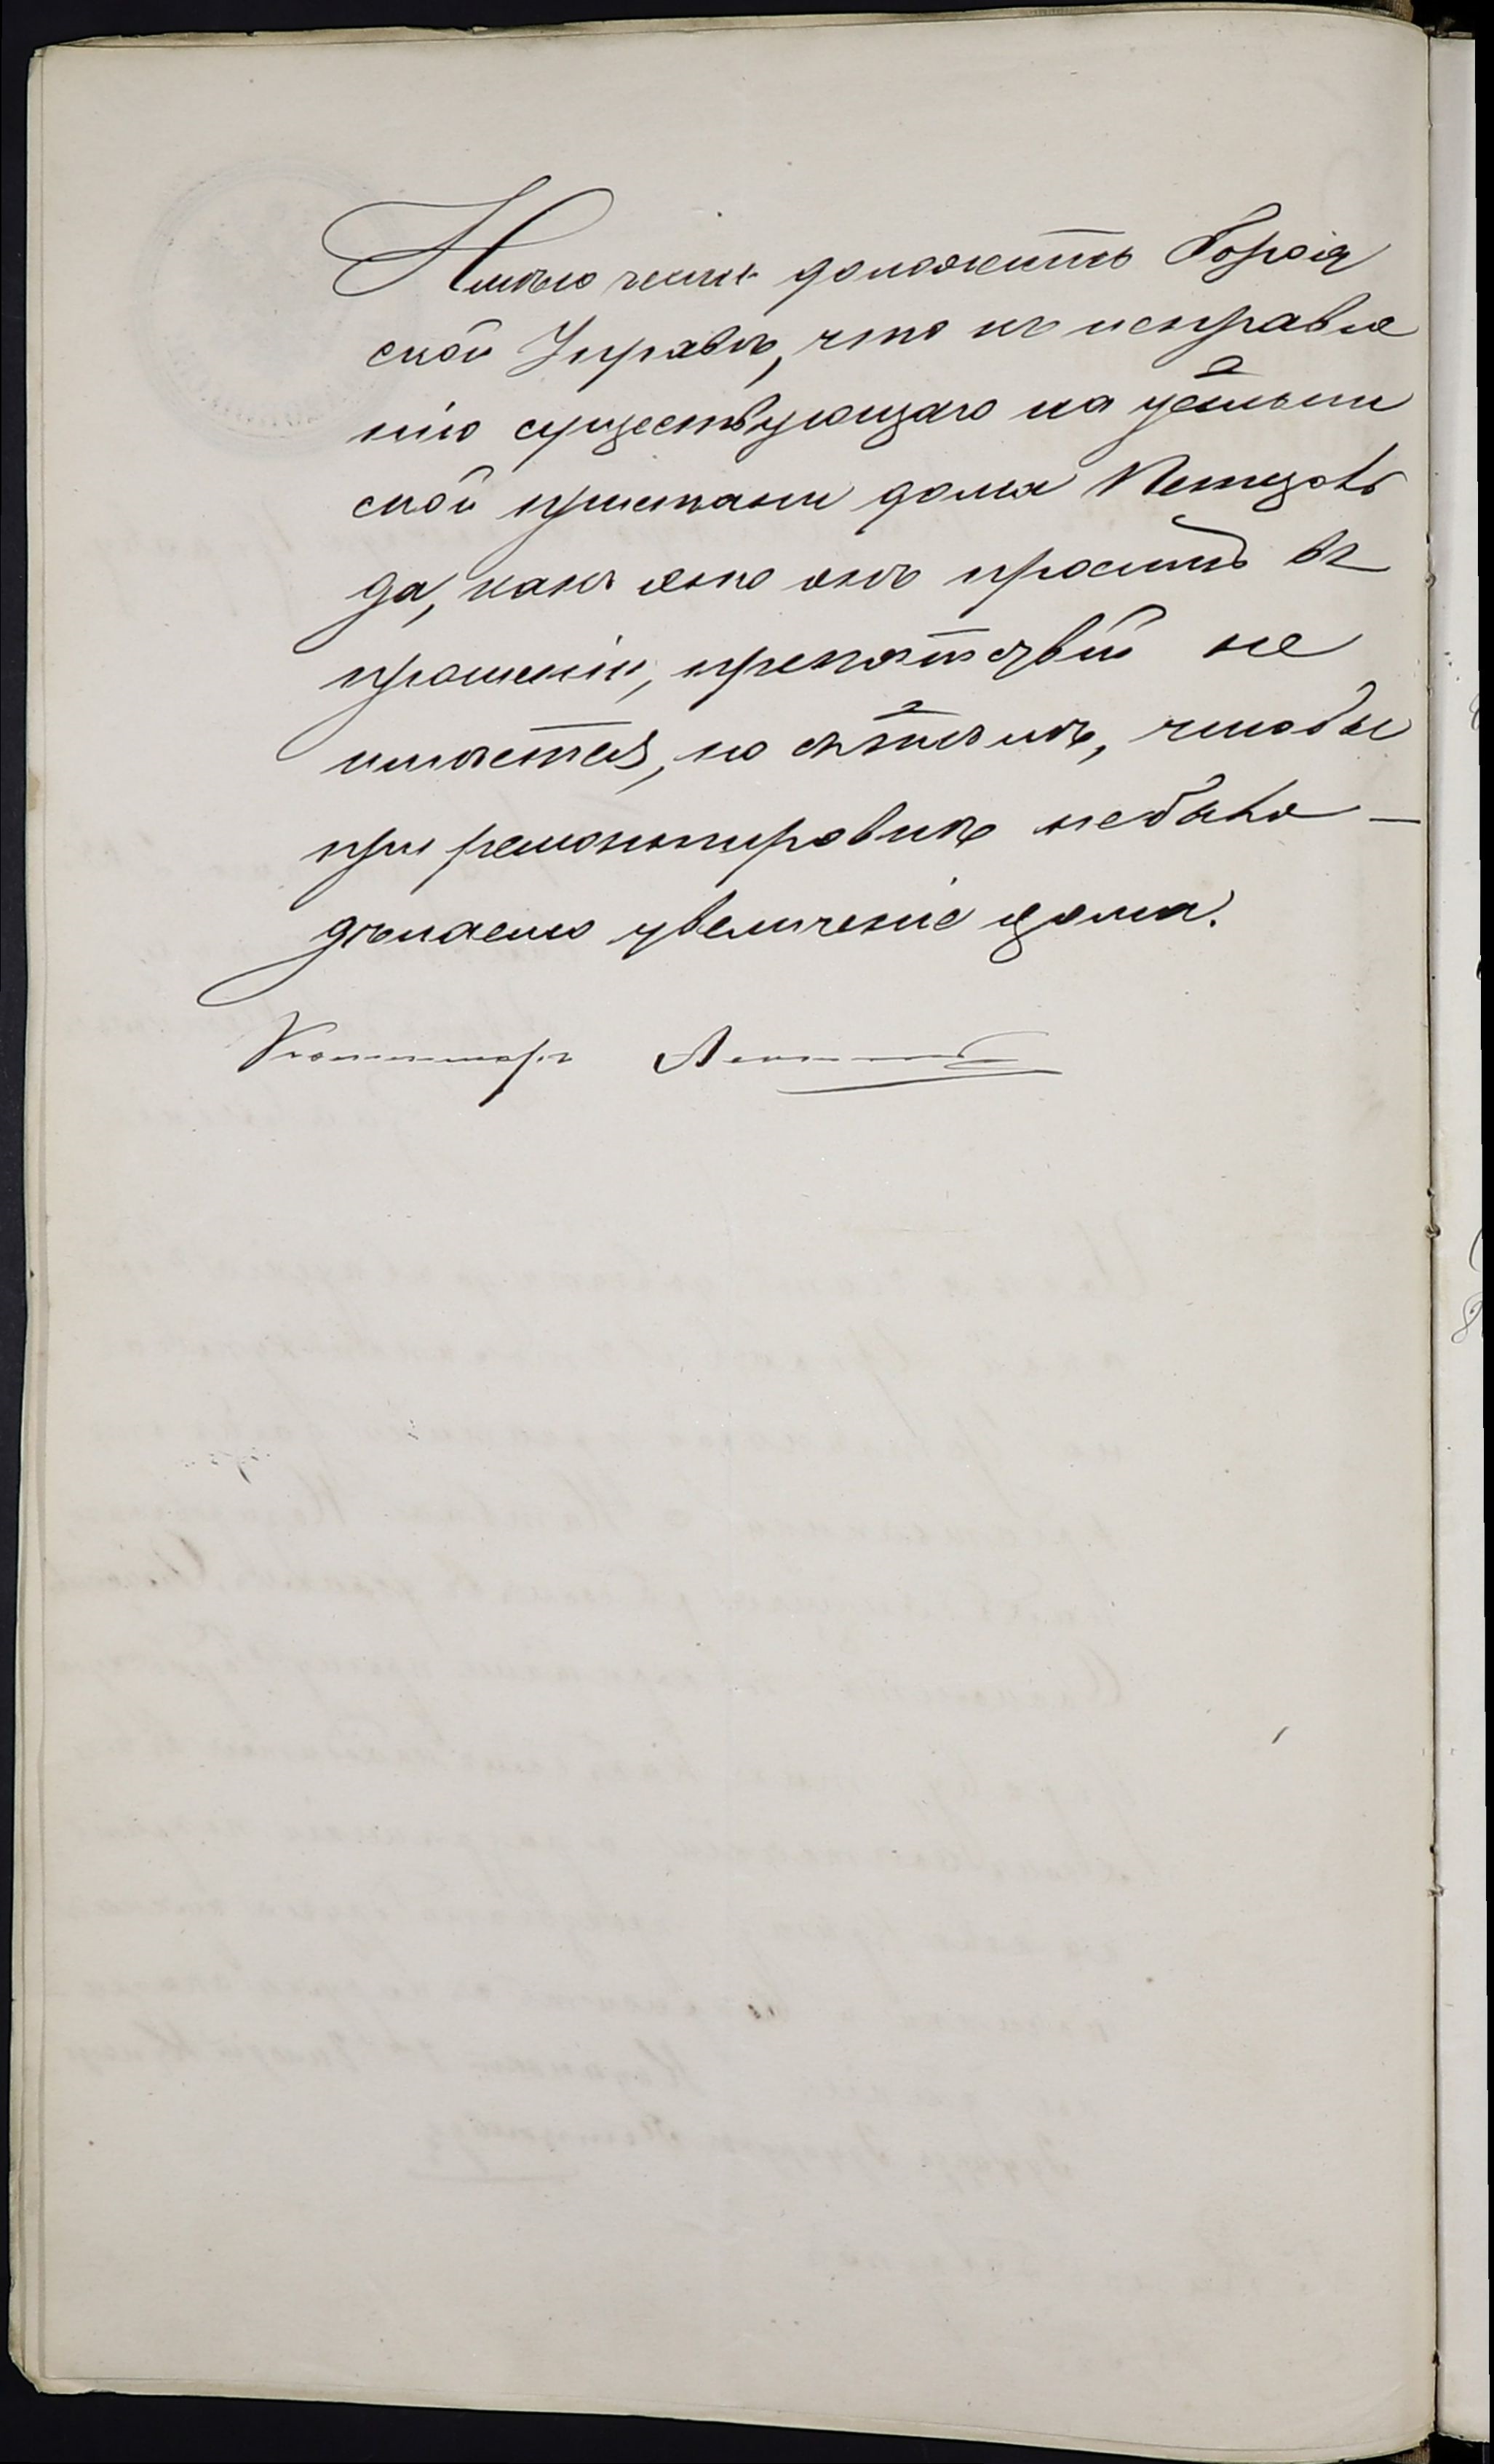 Имѣю честь доложить Город
ской Управѣ, что къ исправле
нію существующаго на устьин
ской пристани дома Петцовь
да, какъ оно онъ проситъ въ
прошеніи, препятствій не
имѣется, но съ тѣмъ, чтобы
при ремонтировкѣ небыло
дѣлаемо увеличеніе дома.